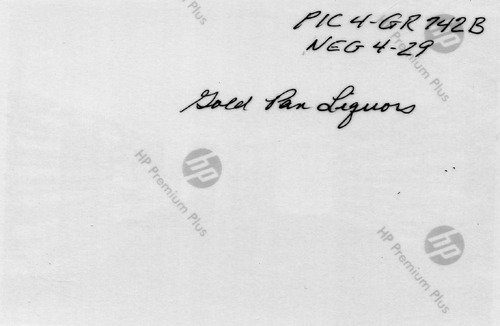 PIC 4-GR 742B
NEG 4-29
Gold Pan Liquors
hp
HP Premium Plus
hp
HP Premium Plus
hp
HP Premium Plus
HP Premium Plus